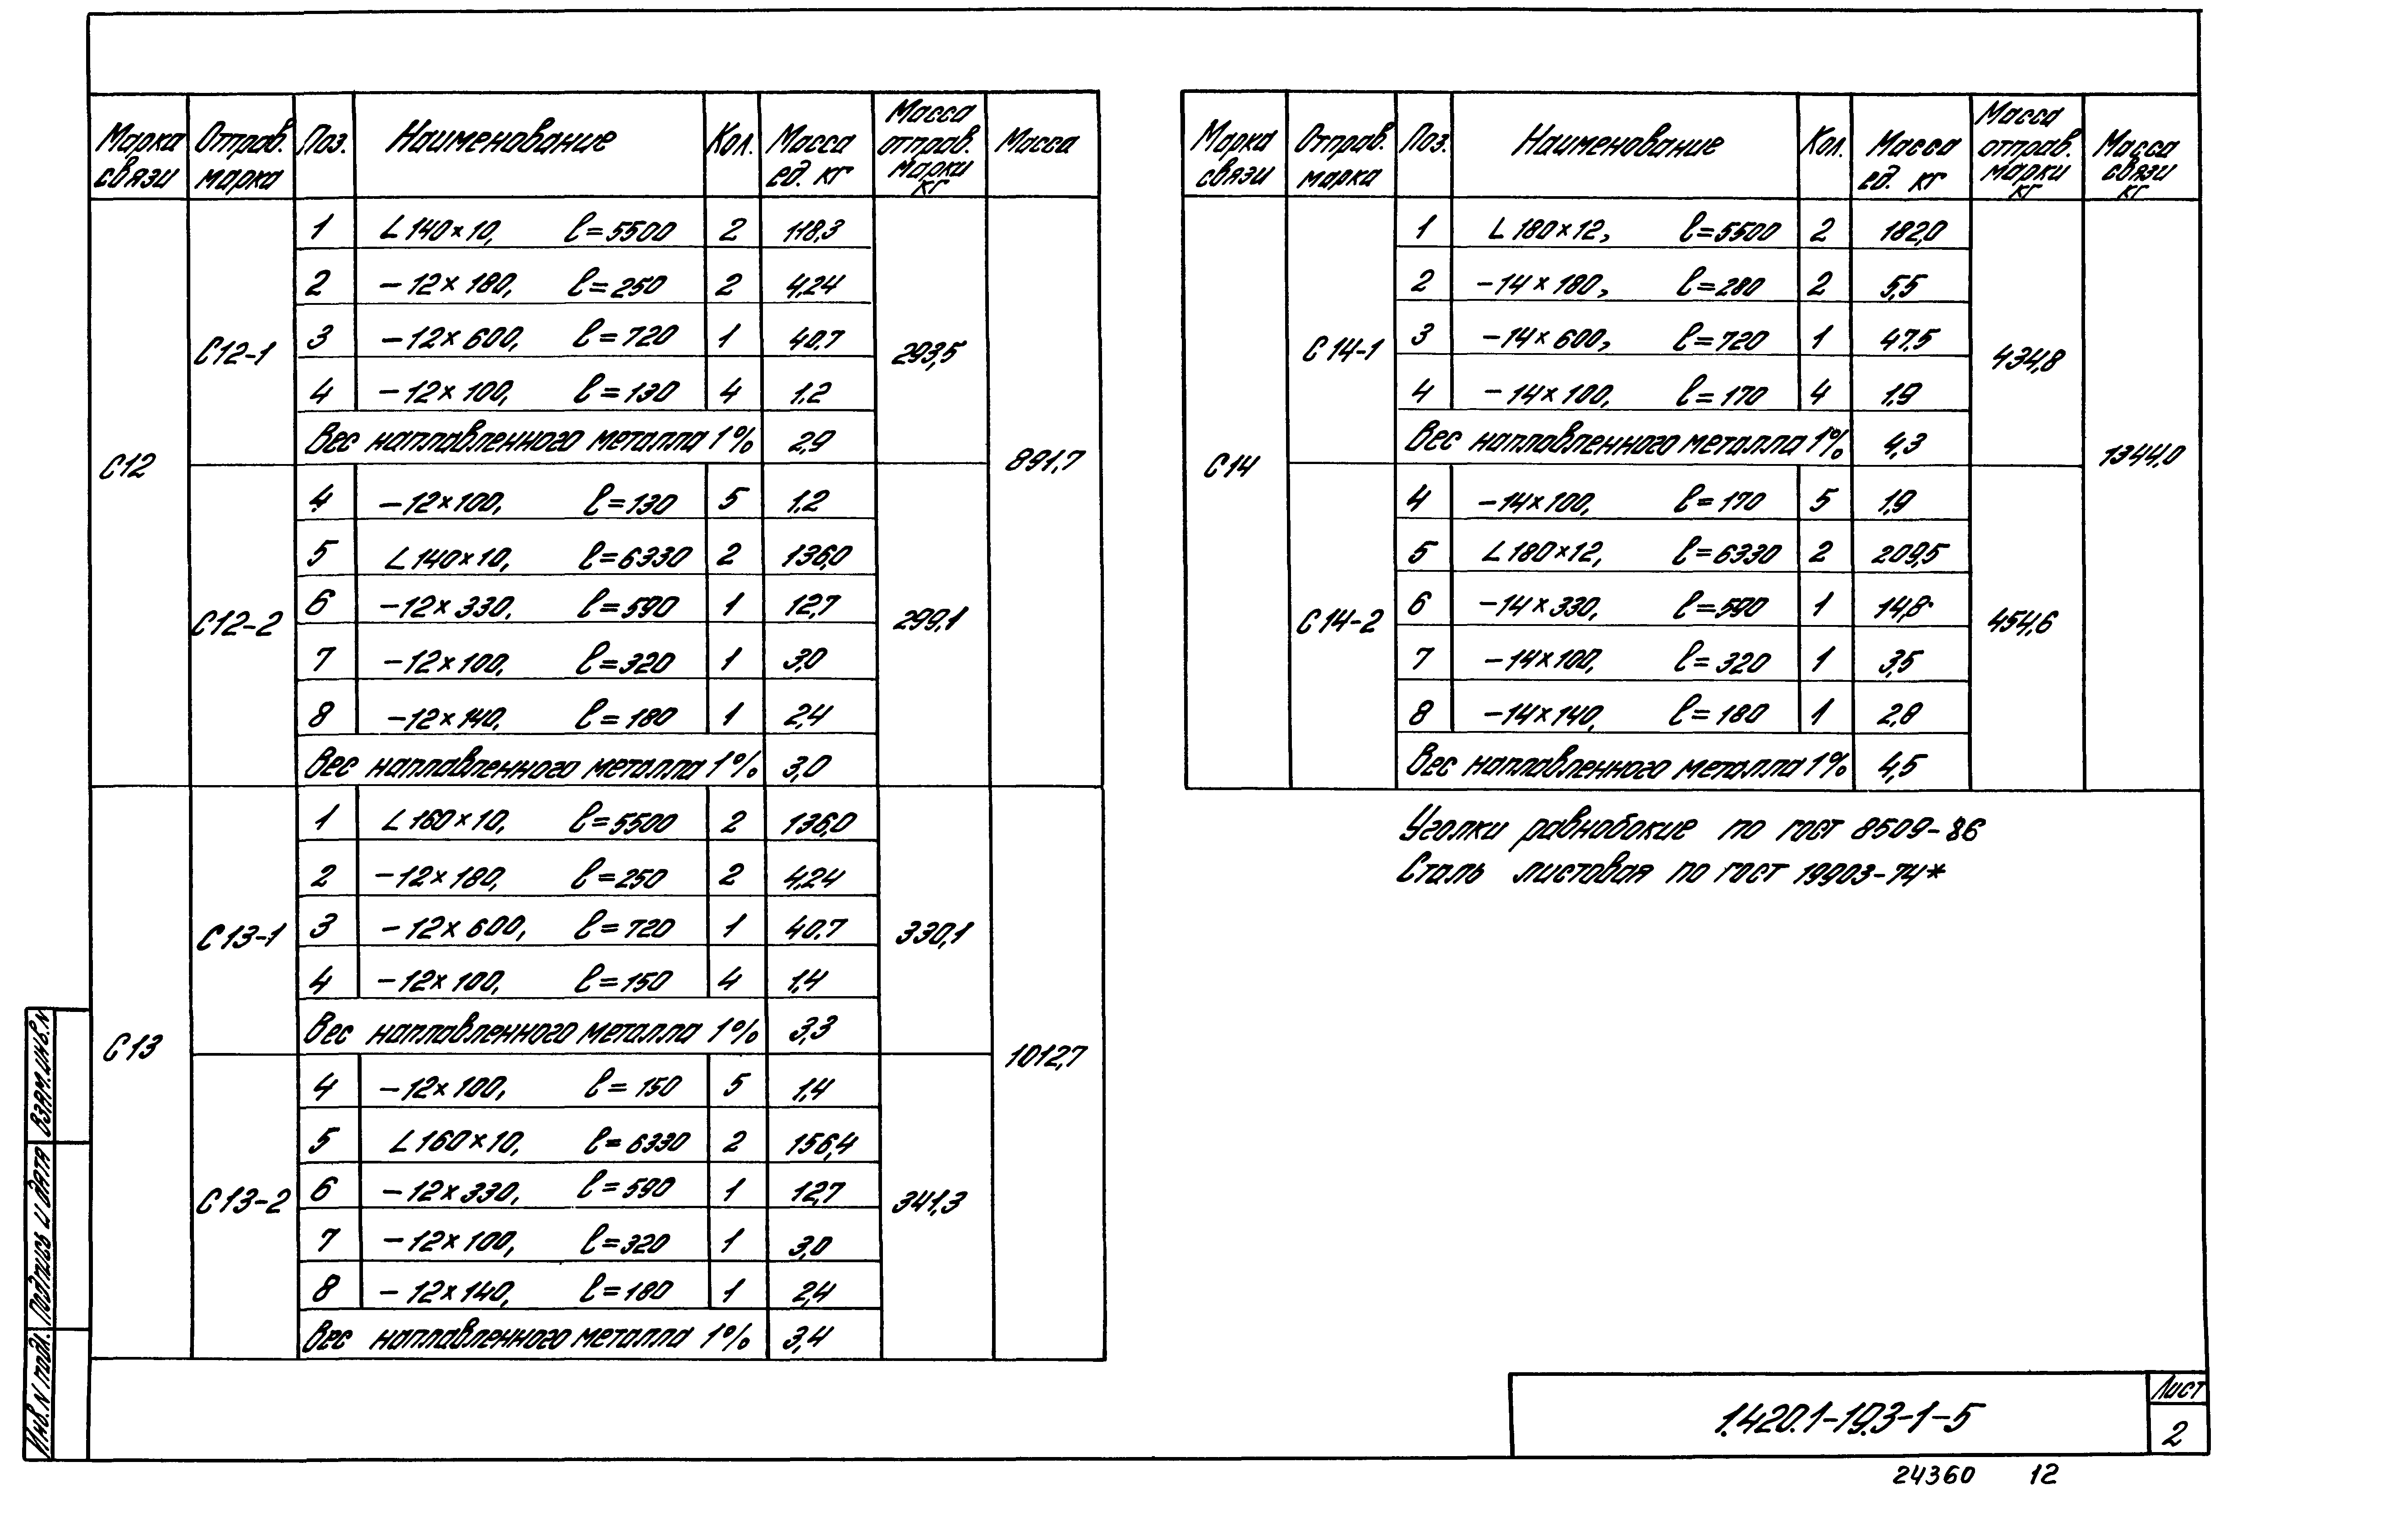 Марка связи Отправ. марка Поз. Наименование Кол. Масса ед. кг Масса отправ. марки кг Масса
С12 С12-1 1 ∟140×10, ℓ=5500 2 118,3 293,5 891,7
2 -12×180, ℓ=250 2 4,24
3 -12×600, ℓ=720 1 40,7
4 -12×100, ℓ=130 4 1,2
Вес наплавленного металла 1% 2,9
С12-2 4 -12×100, ℓ=130 5 1,2 299,1
5 ∟140×10, ℓ=6330 2 136,0
6 -12×330, ℓ=590 1 12,7
7 -12×100, ℓ=320 1 3,0
8 -12×140, ℓ=180 1 2,4
Вес наплавленного металла 1% 3,0
С13 С13-1 1 ∟160×10, ℓ=5500 2 136,0 330,1 1012,7
2 -12×180, ℓ=250 2 4,24
3 -12×600, ℓ=720 1 40,7
4 -12×100, ℓ=150 4 1,4
Вес наплавленного металла 1% 3,3
С13-2 4 -12×100, ℓ=150 5 1,4 341,3
5 ∟160×10, ℓ=6330 2 156,4
6 -12×330, ℓ=590 1 12,7
7 -12×100, ℓ=320 1 3,0
8 -12×140, ℓ=180 1 2,4
Вес наплавленного металла 1% 3,4
Марка связи Отправ. марка Поз. Наименование Кол. Масса ед. кг Масса отправ. марки кг Масса связи кг
С14 С14-1 1 ∟180×12, ℓ=5500 2 182,0 434,8 1344,0
2 -14×180, ℓ=280 2 5,5
3 -14×600, ℓ=720 1 47,5
4 -14×100, ℓ=170 4 1,9
Вес наплавленного металла 1% 4,3
С14-2 4 -14×100, ℓ=170 5 1,9 454,6
5 ∟180×12, ℓ=6330 2 209,5
6 -14×330, ℓ=590 1 14,8
7 -14×100, ℓ=320 1 3,5
8 -14×140, ℓ=180 1 2,8
Вес наплавленного металла 1% 4,5
Уголки равнобокие по гост 8509-86
Сталь листовая по гост 19903-74*
Инв. N подл. Подпись и дата Взам. инв. N
1.420.1-19.3-1-5
Лист
2
24360 12